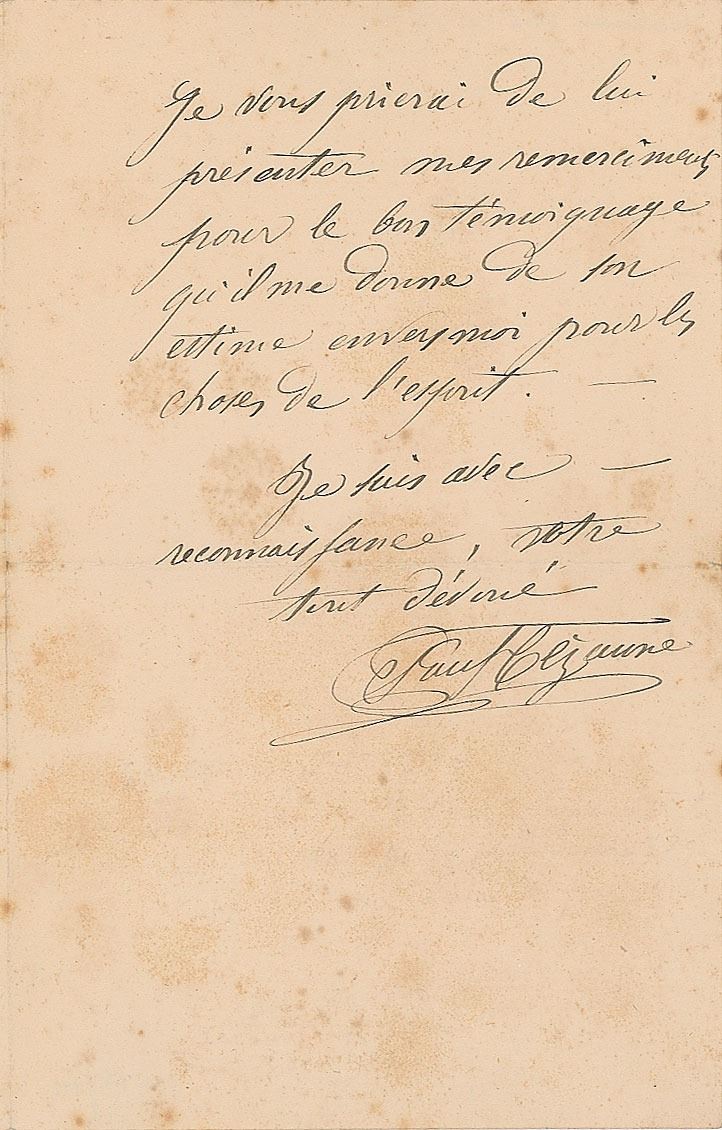 Je vous prierai de lui
présenter mes remerciments
pour le bon témoignage
qu'il me donne de son
estime envers moi pour les
choses de l'esprit. —
Je suis avec —
reconnaissance, votre
tout dévoué
Paul Cézanne